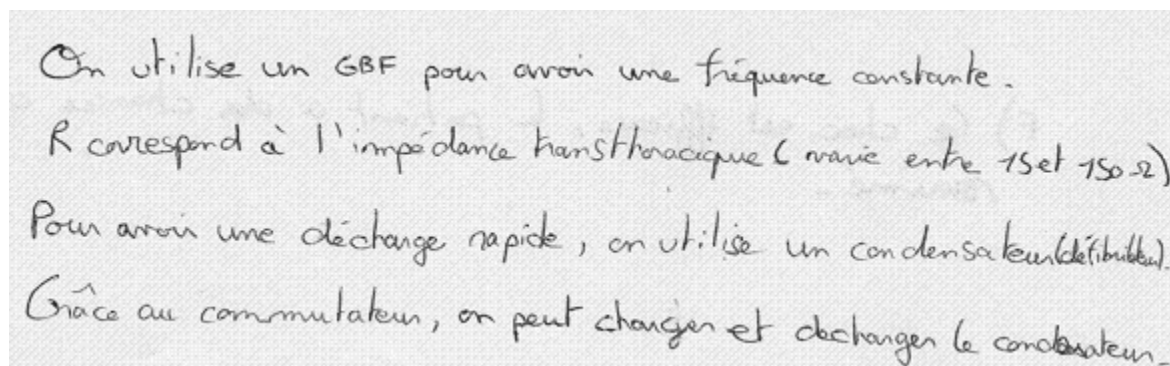 On utilise un GBF pour avoir une fréquence constante.
R correspond à l'impédance transthoracique (varie entre 15 et 150 Ω)
Pour avoir une décharge rapide, on utilise un condensateur (défibrilateur).
Grâce au commutateur, on peut charger et decharger le condensateur.